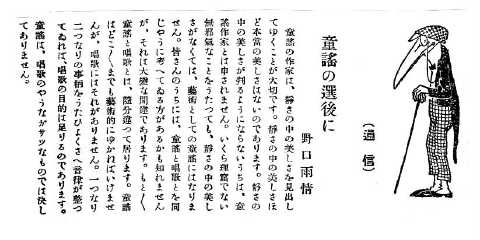 童謡の選後に
(通信)
野口雨情
童謡の作家は、靜さの中の美しさを見出し
てゆくことが大切です。靜さの中の美しさほ
ど本當の美しさはないのであります。靜さの
中の美しさが判るようにならないうちは、童
謡作家とは申されません。いくら理窟でない
無邪氣なことをうたつても、靜さの中の美し
さがなくては、藝術としての童謡にはなりま
せん。皆さんのうちには、童謡と唱歌とを同
じやうに考へてゐる方があるかも知れません
が、それは大變な間違であります。もと〱
童謡と唱歌とは、随分違つて居ります。童謡
はどこ〱までも藝術的にゆかねばいけませ
んが、唱歌にはそれがありません。一つなり
二つなりの事柄をうたひよくさへ音律が整つ
てゐれば、唱歌の目的は足りるのであります。
童謡は、唱歌のやうなガサツなものでは決し
てありません。